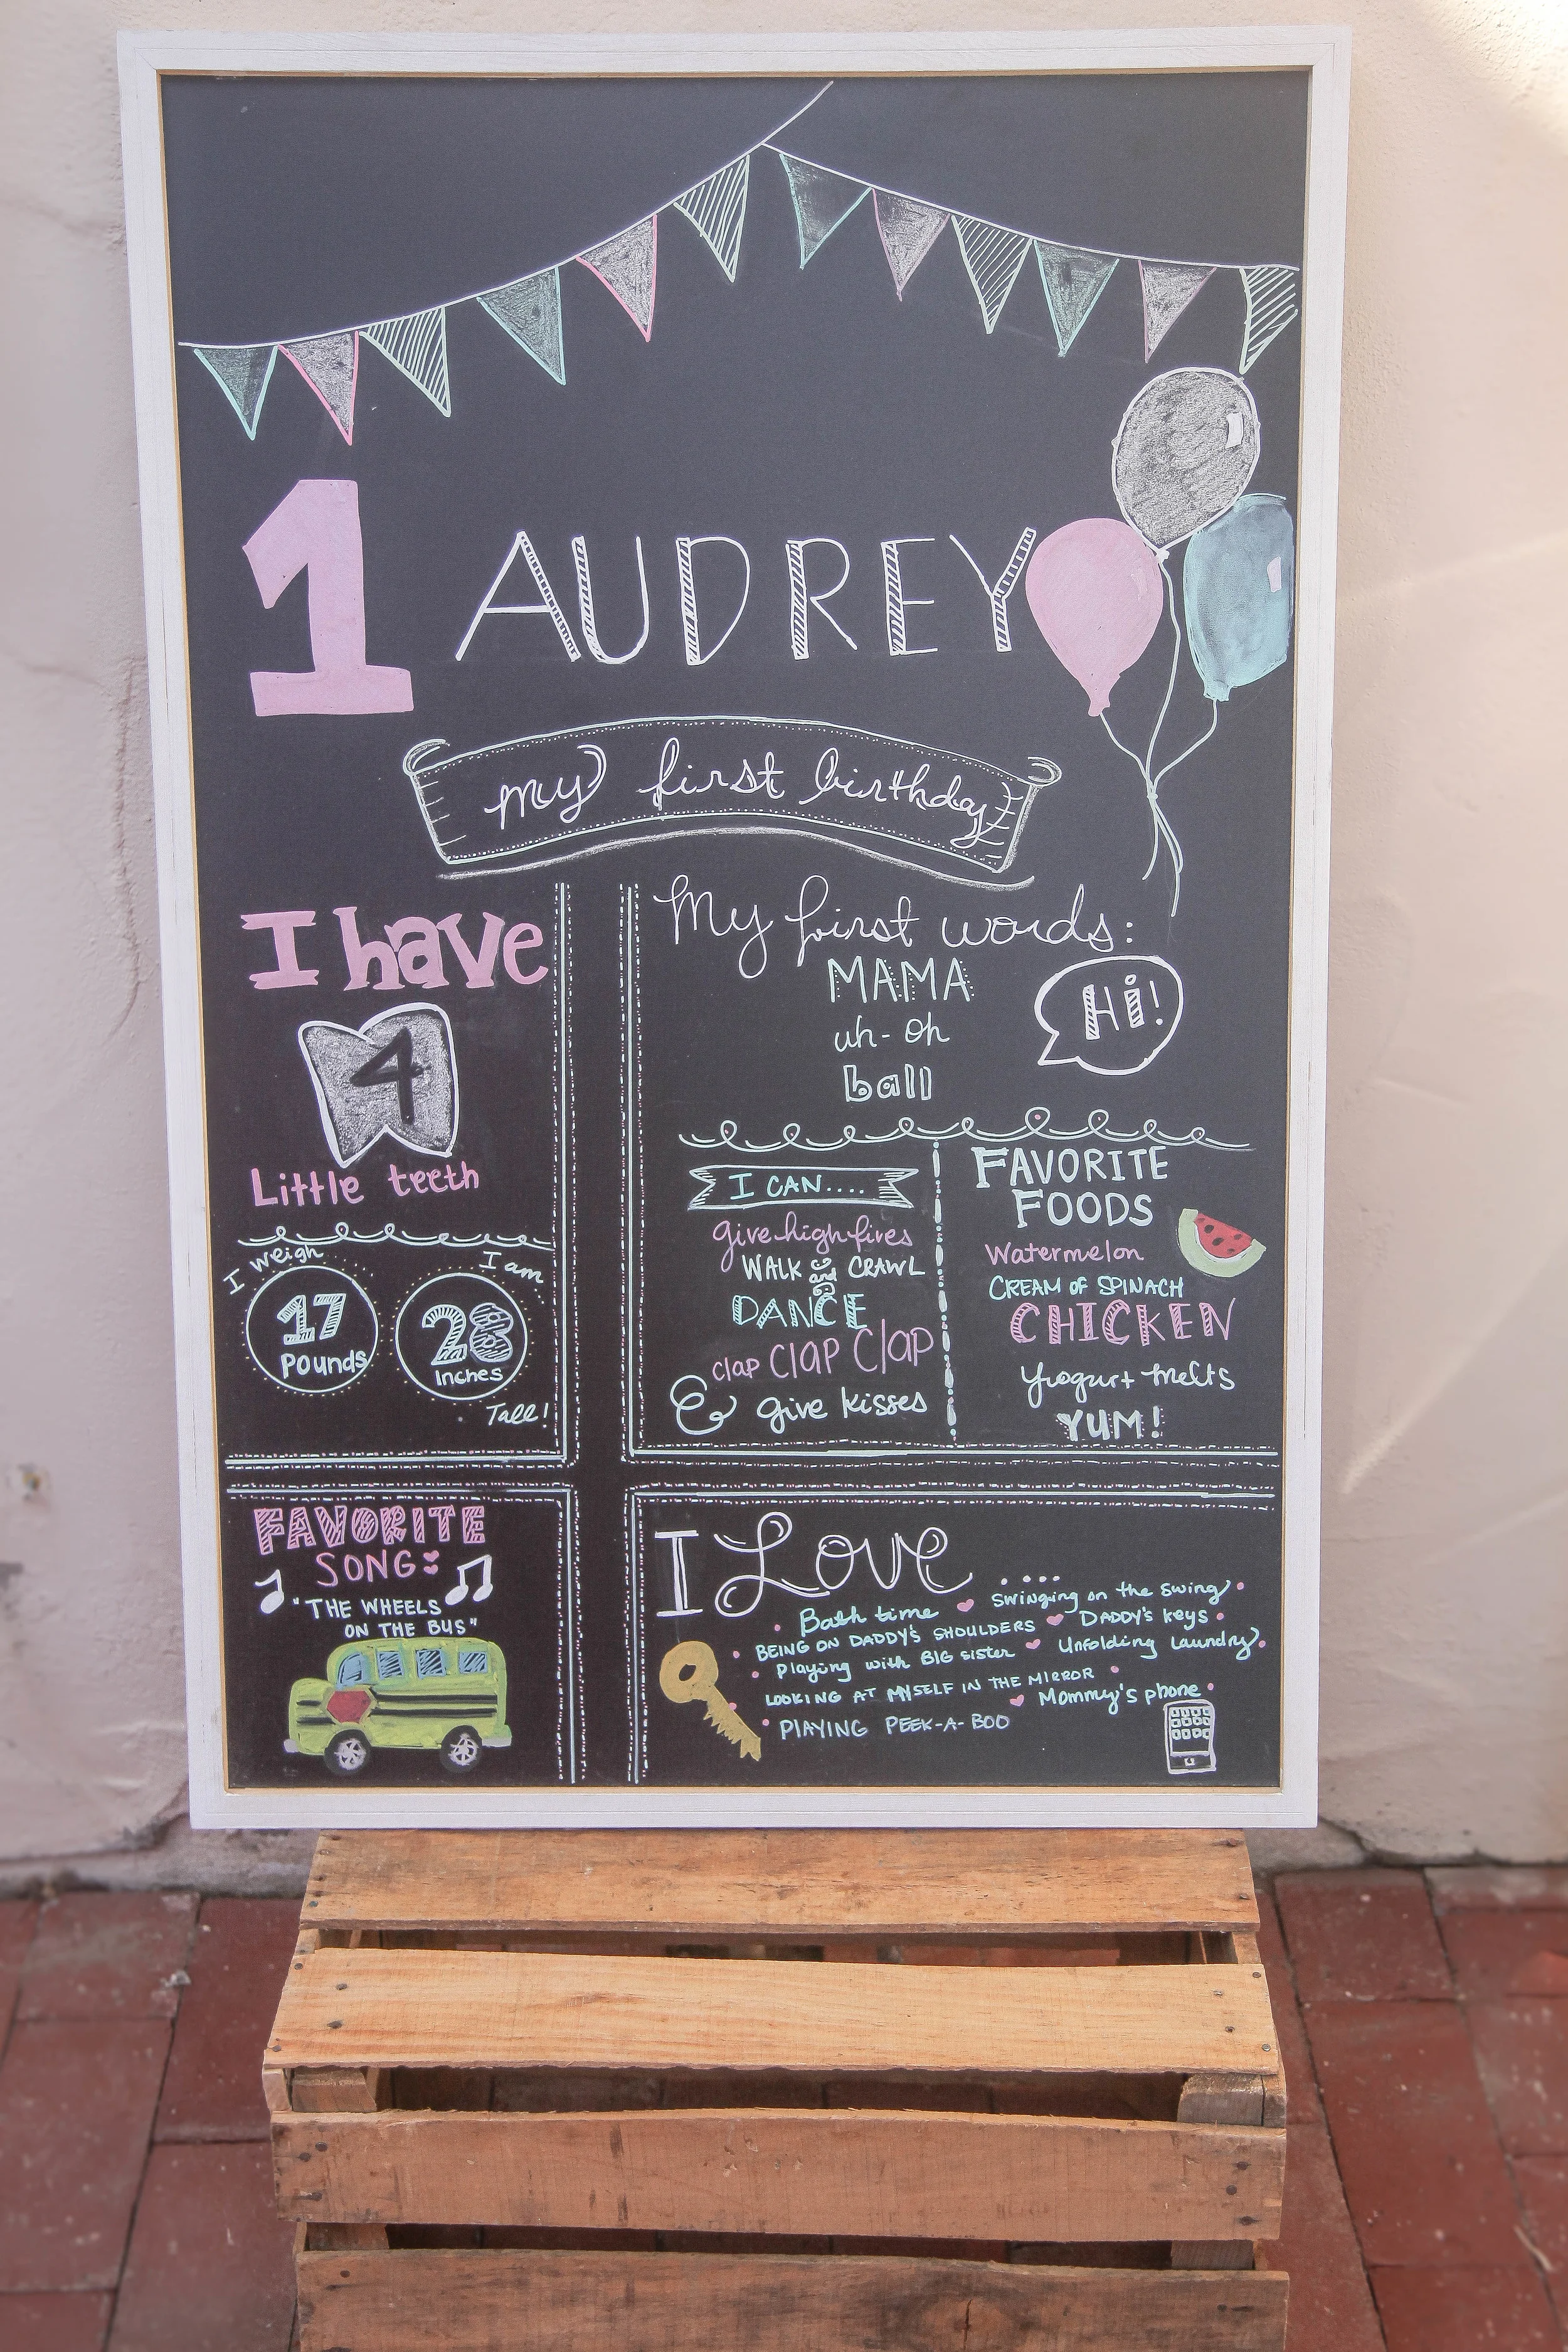 1 AUDREY
my first birthday
I have
4
Little teeth
I weigh
17
Pounds
I am
28
Inches
Tall!
My first words:
MAMA
Hi!
uh-oh
ball
I CAN....
give high fives
WALK and CRAWL
DANCE
clap clap clap
& give kisses
FAVORITE
FOODS
Watermelon
CREAM OF SPINACH
CHICKEN
Yogurt melts
YUM!
FAVORITE
SONG:
"THE WHEELS
ON THE BUS"
I Love ....
Bath time ♥ Swinging on the swing •
• BEING ON DADDY'S SHOULDERS ♥ DADDY'S keys •
• Playing with BIG sister ♥ Unfolding laundry •
LOOKING AT MYSELF IN THE MIRROR •
♥ Mommy's phone •
• PLAYING PEEK-A-BOO